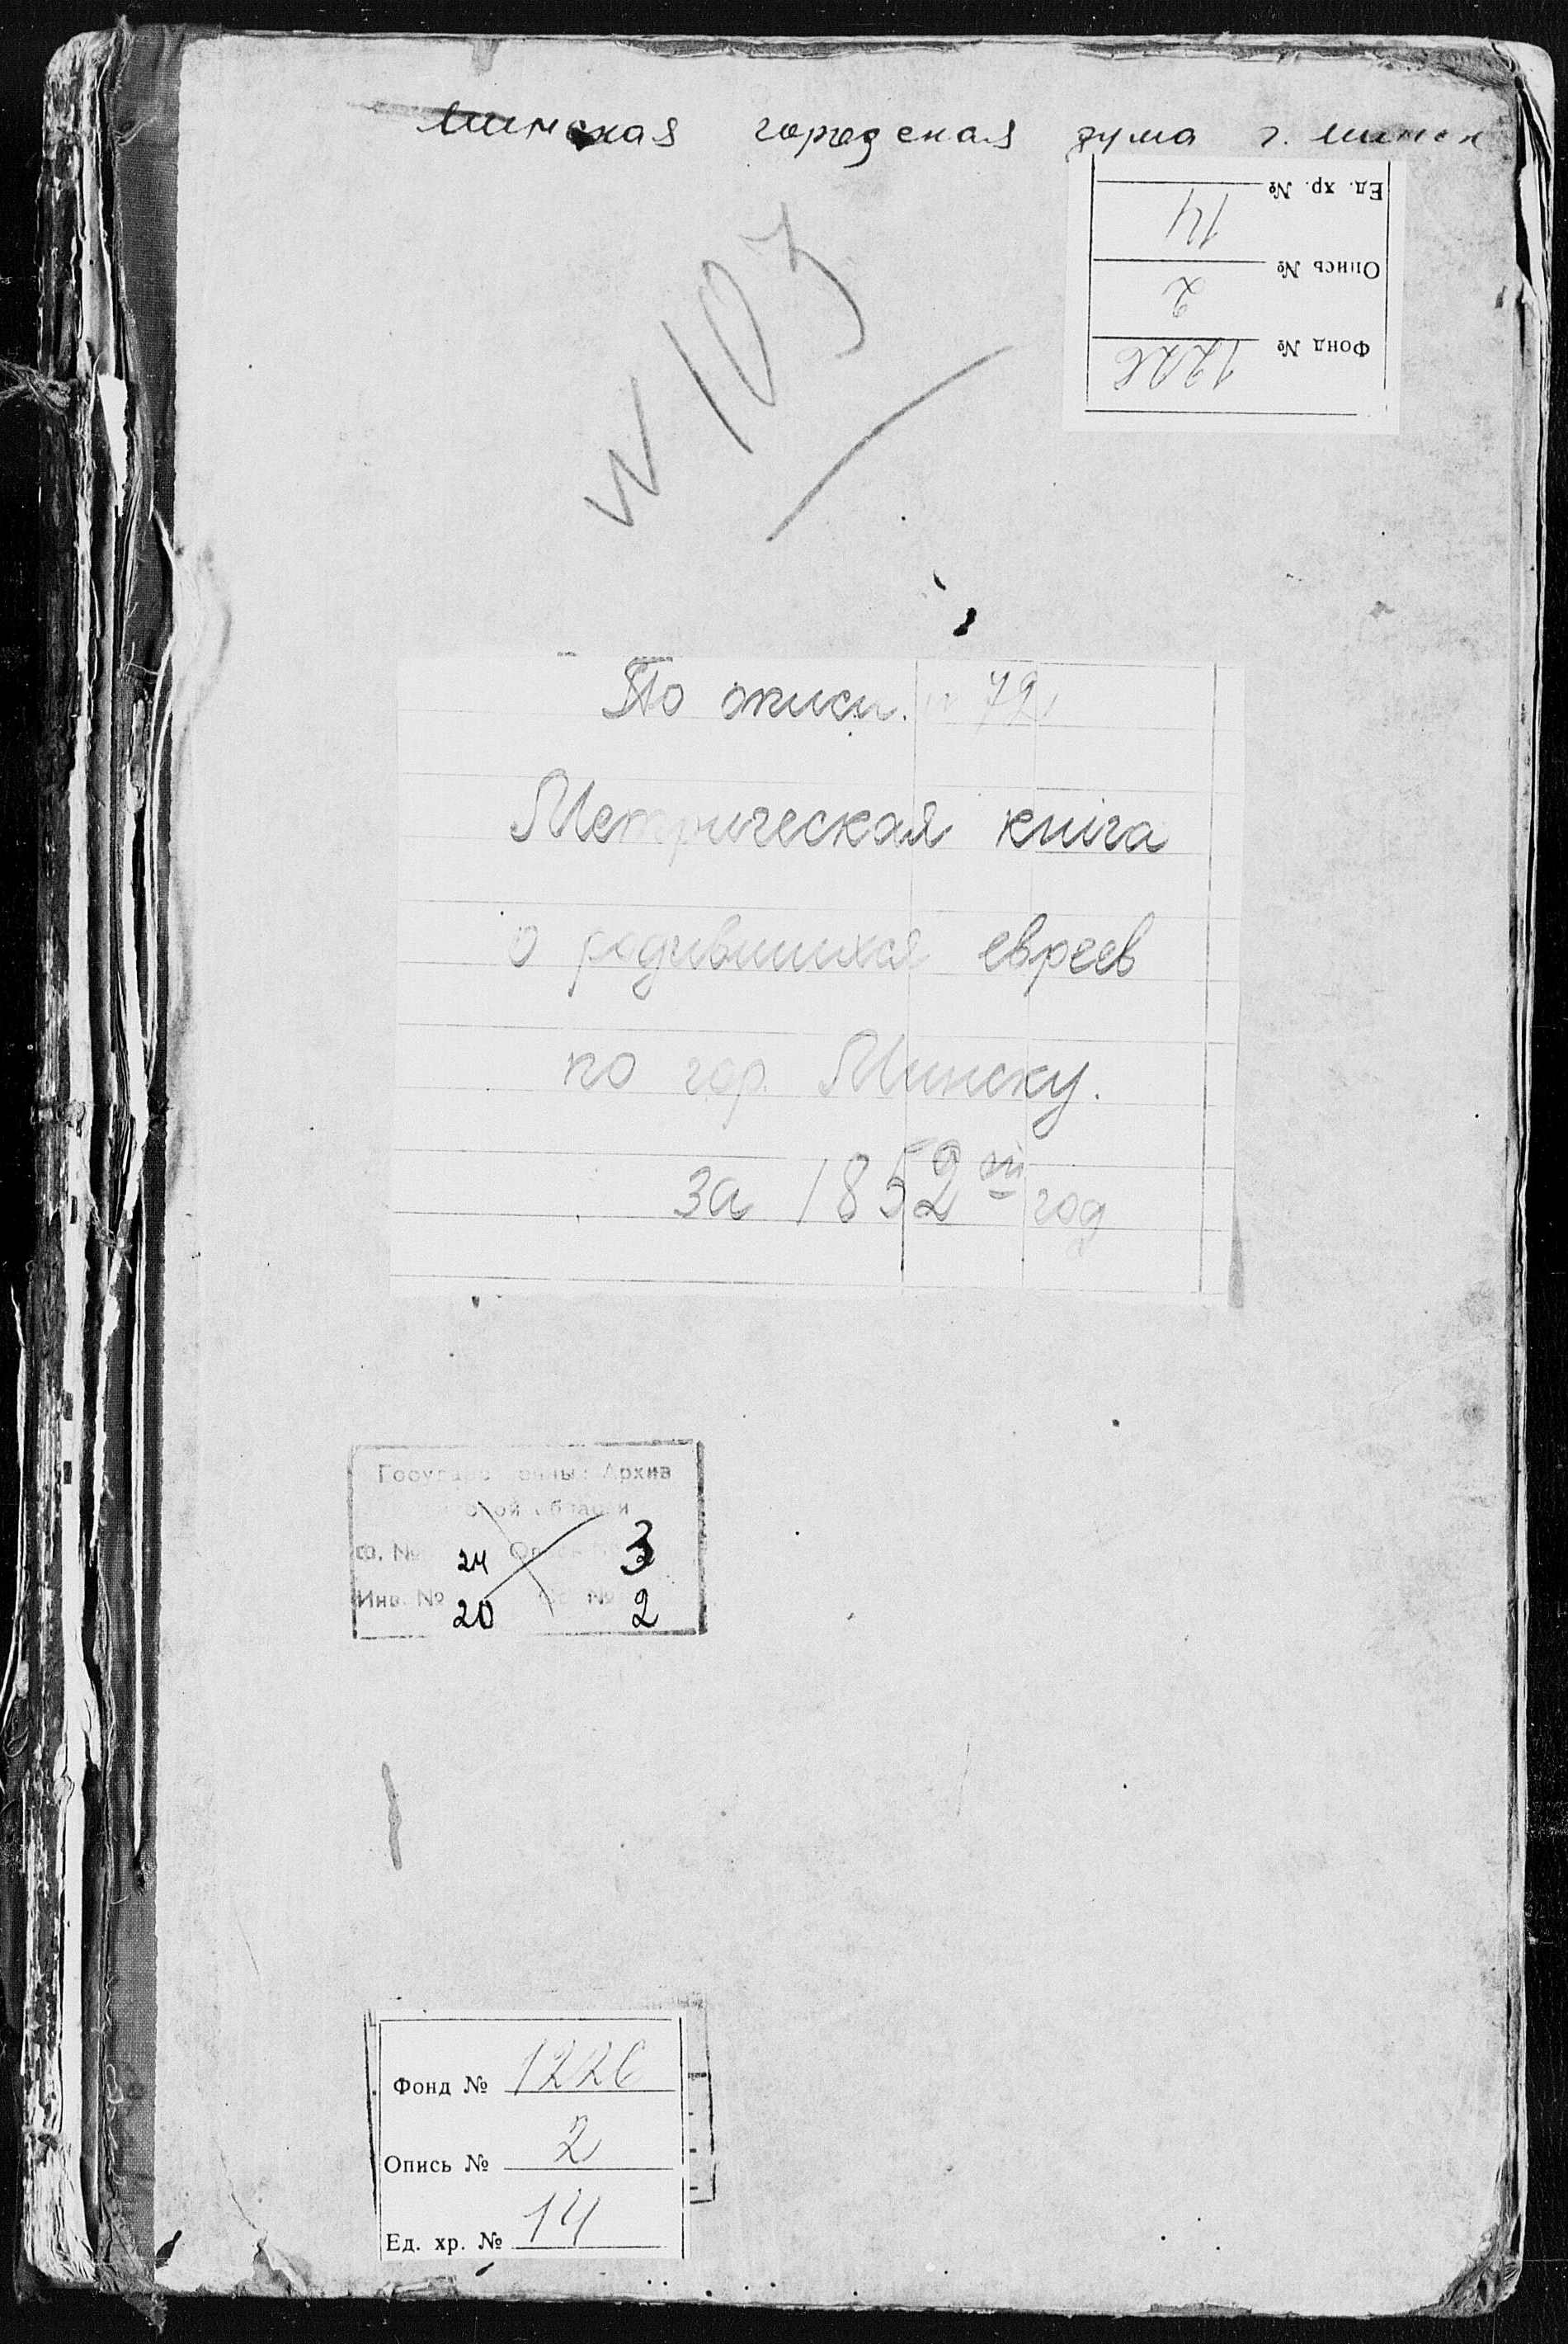 Минская городская дума г. Минск
Ед. хр. № 14
Опись № 2
Фонд № 1226
N 103
По описи. № 72
Метрическая книга
о родившихся евреев
по гор. Минску.
за 1852 ой год
Государственный Архив
ской области
Ф. № 24 Опись 3
Инв. № 20 № 2
Фонд № 1226
Опись № 2
Ед. хр. № 14